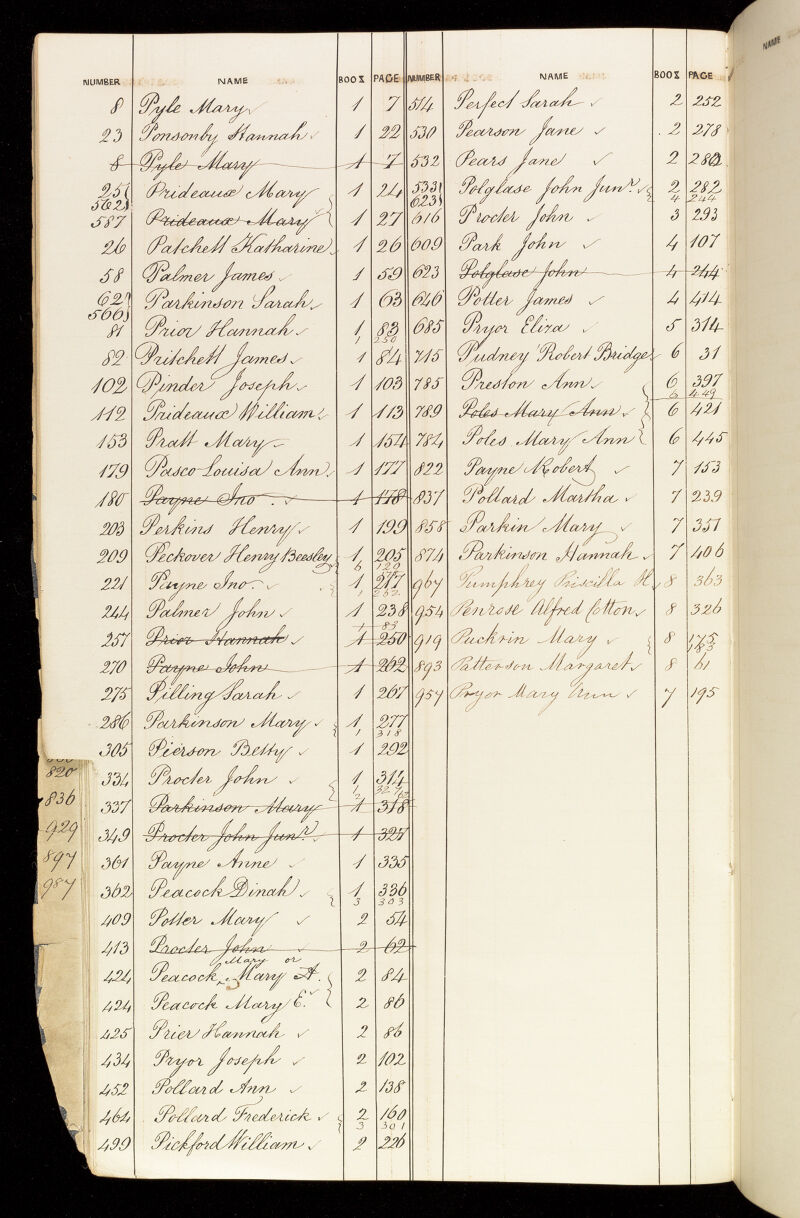 NUMBER NAME BOOK PAGE
8 Pyle Mary 1 7
23 Ponsonby Hannah 1 22
8 Pyle Mary 1 7
25 562 Prideaux Mary 1 24
587 Prideaux Mary 1 27
26 Patchett Katharine 1 26
58 Palmer James 1 59
62 566 Parkinson Sarah 1 63
81 Prior Hannah 1 83
1 250
82 Pritchett James 1 84
102 Pinder Joseph 1 103
112 Prideaux William 1 113
153 Pratt Mary 1 154
179 Pasco Louisa Ann 1 177
180 Payne Jno. 1 178
203 Perkins Henry 1 199
209 Peckover Henry Beesley 1 205
6 120
221 Payne Jno. 1 217
1 262
244 Palmer John 1 238
1 83
257 Prior Hannah 1 250
270 Payne John 1 262
275 Pilling Sarah 1 267
286 Parkinson Mary 1 277
1 318
305 Pierson Betty 1 292
334 Procter John 1 314
337 Parkinson Mary 1 318
349 Procter John Junr. 1 327
361 Payne Anne 1 335
362 Peacock Dinah 1 336
3 303
409 Potter Mary 2 54
413 Procter John 2 62
Mary or
424 Peacock Mary A. 2 84
424 Peacock Mary E. 2 86
425 Prier Hannah 2 86
434 Pryor Joseph 2 102
452 Pollard Ann 2 138
464 Pollard Frederick 2 160
3 301
499 Pickford William 2 226
NUMBER NAME BOOK PAGE
514 Perfect Sarah 2 252
530 Pearson Jane 2 278
532 Pears Jane 2 280
533 623 Polglase John Junr. 2 282
4 244
616 Procter John 3 293
609 Park John 4 107
623 Polglase John 4 244
646 Potter James 4 414
685 Pryor Eliza 5 314
715 Pudney Robert Bridge 6 31
785 Preston Ann 6 397
6 449
789 Poles Mary Ann 6 421
784 Poles Mary Ann 6 445
822 Payne Robert 7 153
837 Pollard Martha 7 239
858 Parkin Mary 7 351
874 Parkinson Hannah 7 406
967 Pumphrey Priscilla H. 8 363
954 Penrose Alfred Cotton 8 326
919 Puckrin Mary 8 175
183
893 Patterson Margaret 8 61
957 Pryor Mary Ann 7 195
820
836
929
897
987
NAME